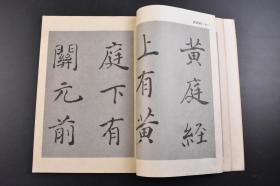 黄庭經
上有黄
庭下有
關元前